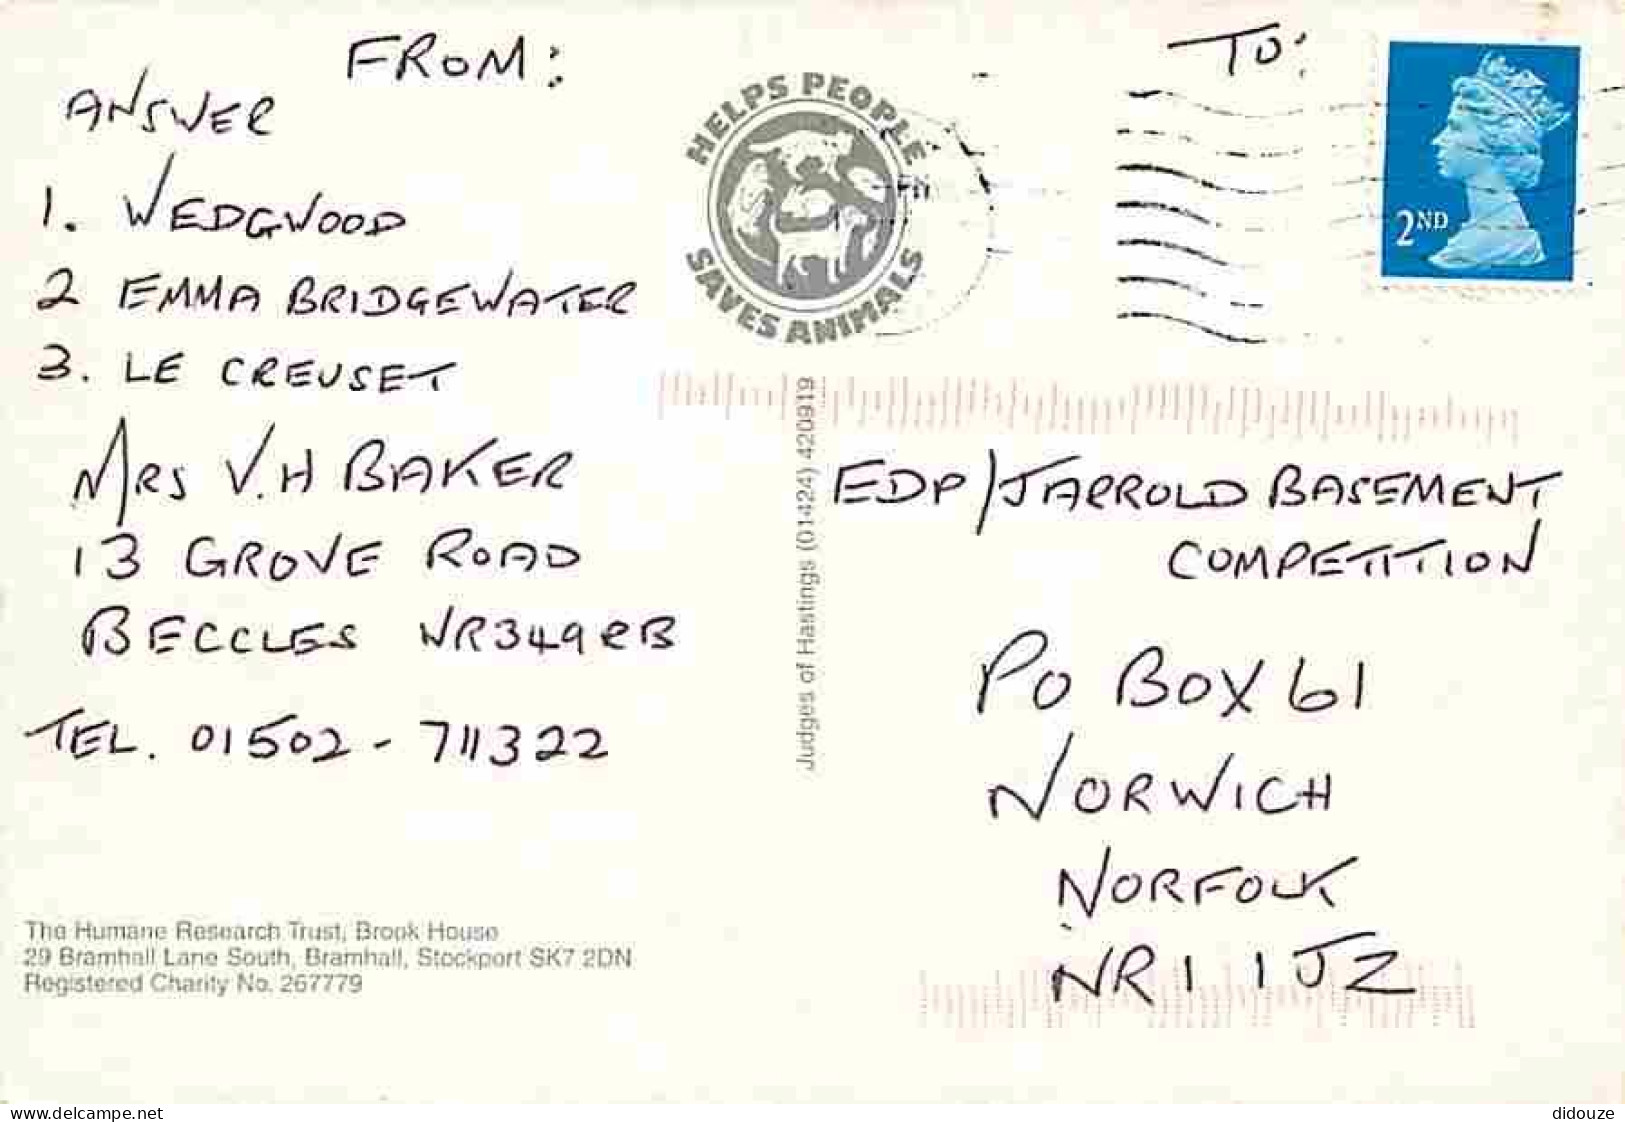 FROM:
ANSWER
1. WEDGWOOD
2 EMMA BRIDGEWATER
3. LE CREUSET
MRS V.H BAKER
13 GROVE ROAD
BECCLES NR349RB
TEL. 01502-711322
The Humane Research Trust, Brook House
29 Bramhall Lane South, Bramhall, Stockport SK7 2DN
Registered Charity No. 267779
HELPS PEOPLE
SAVES ANIMALS
Judges of Hastings (01424) 420919
TO:
2ND
EDP/JARROLD BASEMENT
COMPETITION
PO BOX 61
NORWICH
NORFOLK
NR1 1JZ
delcampe.net
didouze